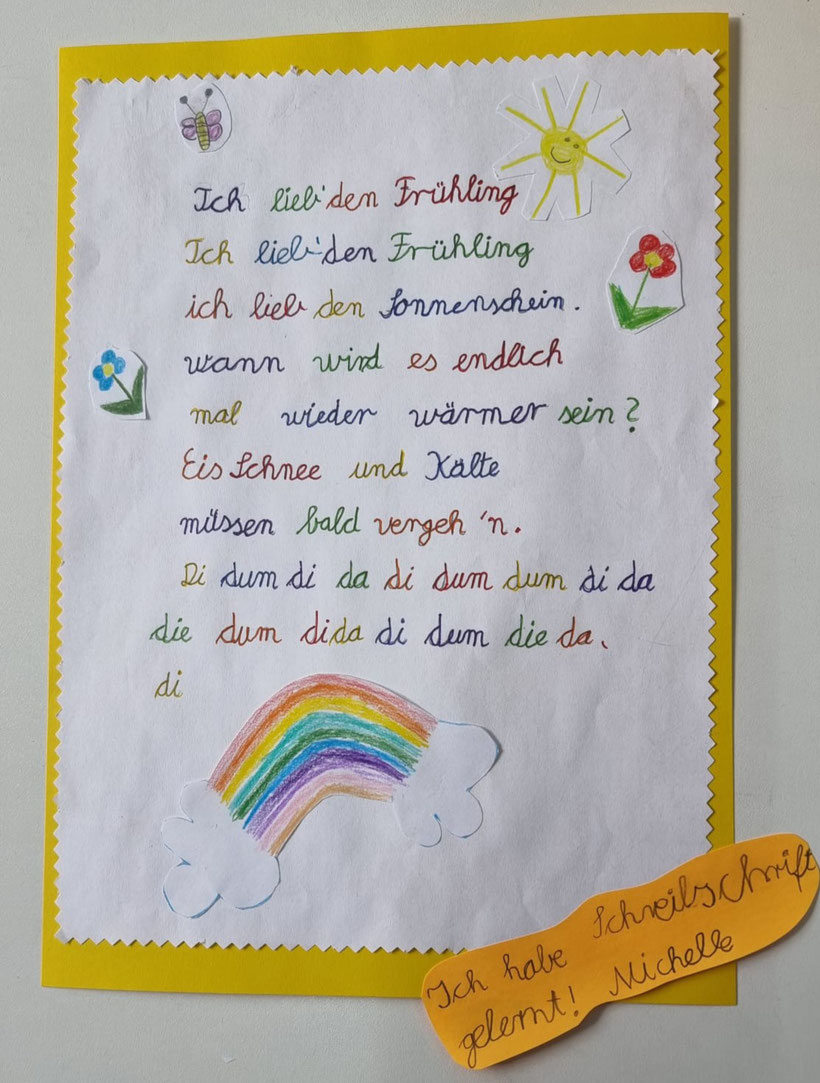 Ich lieb' den Frühling
Ich lieb' den Frühling
ich lieb den Sonnenschein.
wann wird es endlich
mal wieder wärmer sein?
Eis Schnee und Kälte
müssen bald vergeh'n.
Di dum di da di dum dum di da
die dum di da di dum die da.
di
Ich habe Schreibschrift
gelernt! Michelle